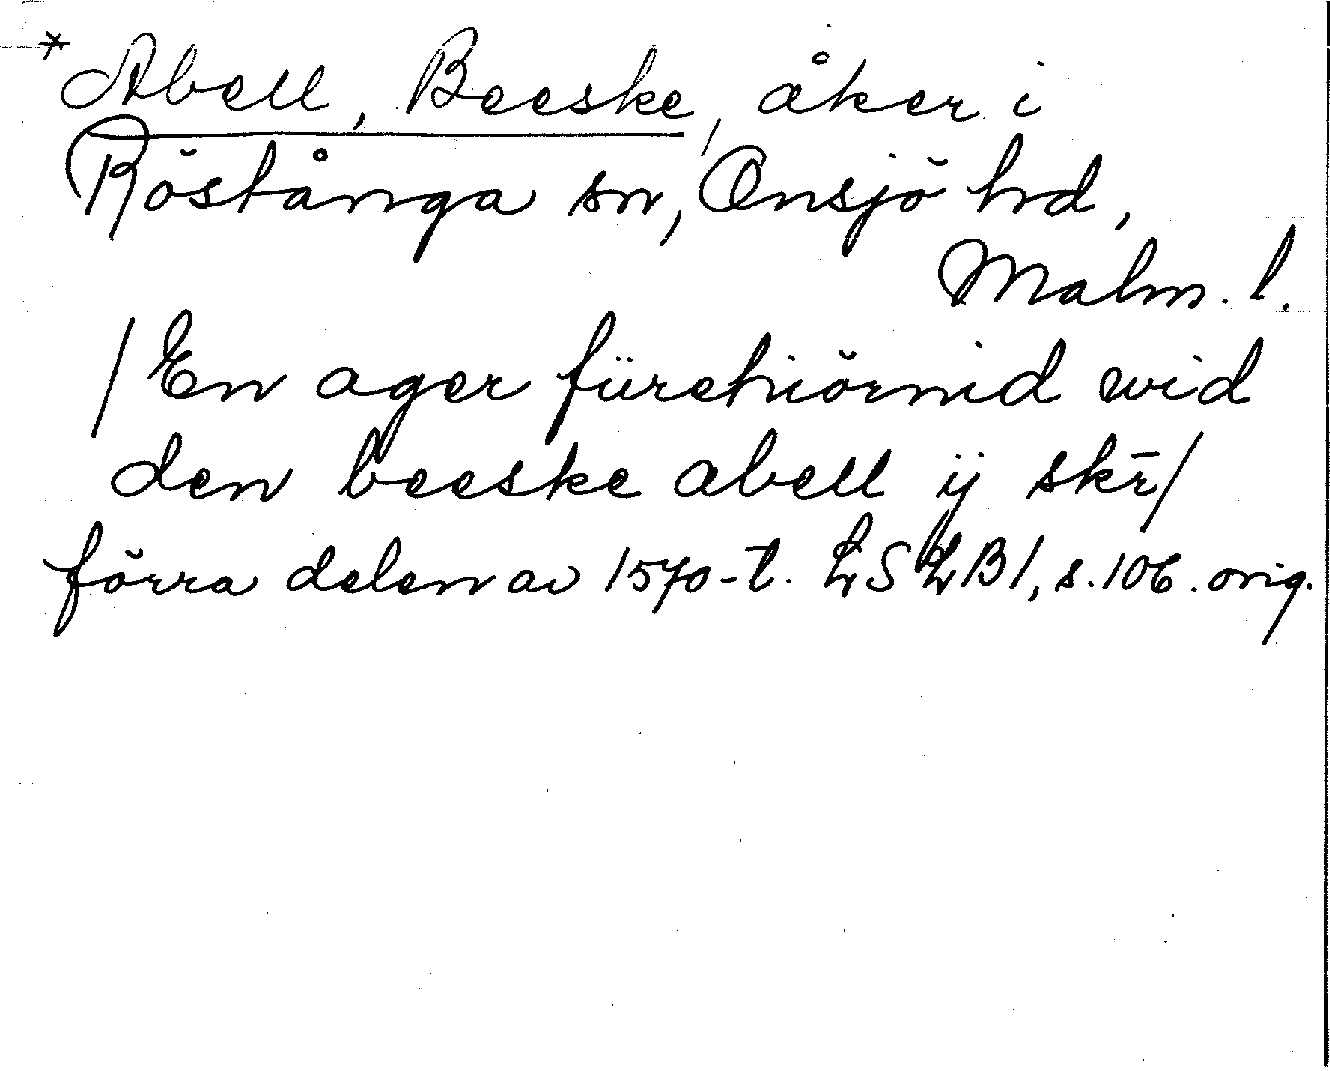 * Abell, Beeske, åker i
Röstånga sn, Onsjö hd,
Malm. l.
/En ager fürehiörnid wid
den beeske abell ÿ skr̄/
förra delen av 1570-t. LSLB1, s. 106. orig.